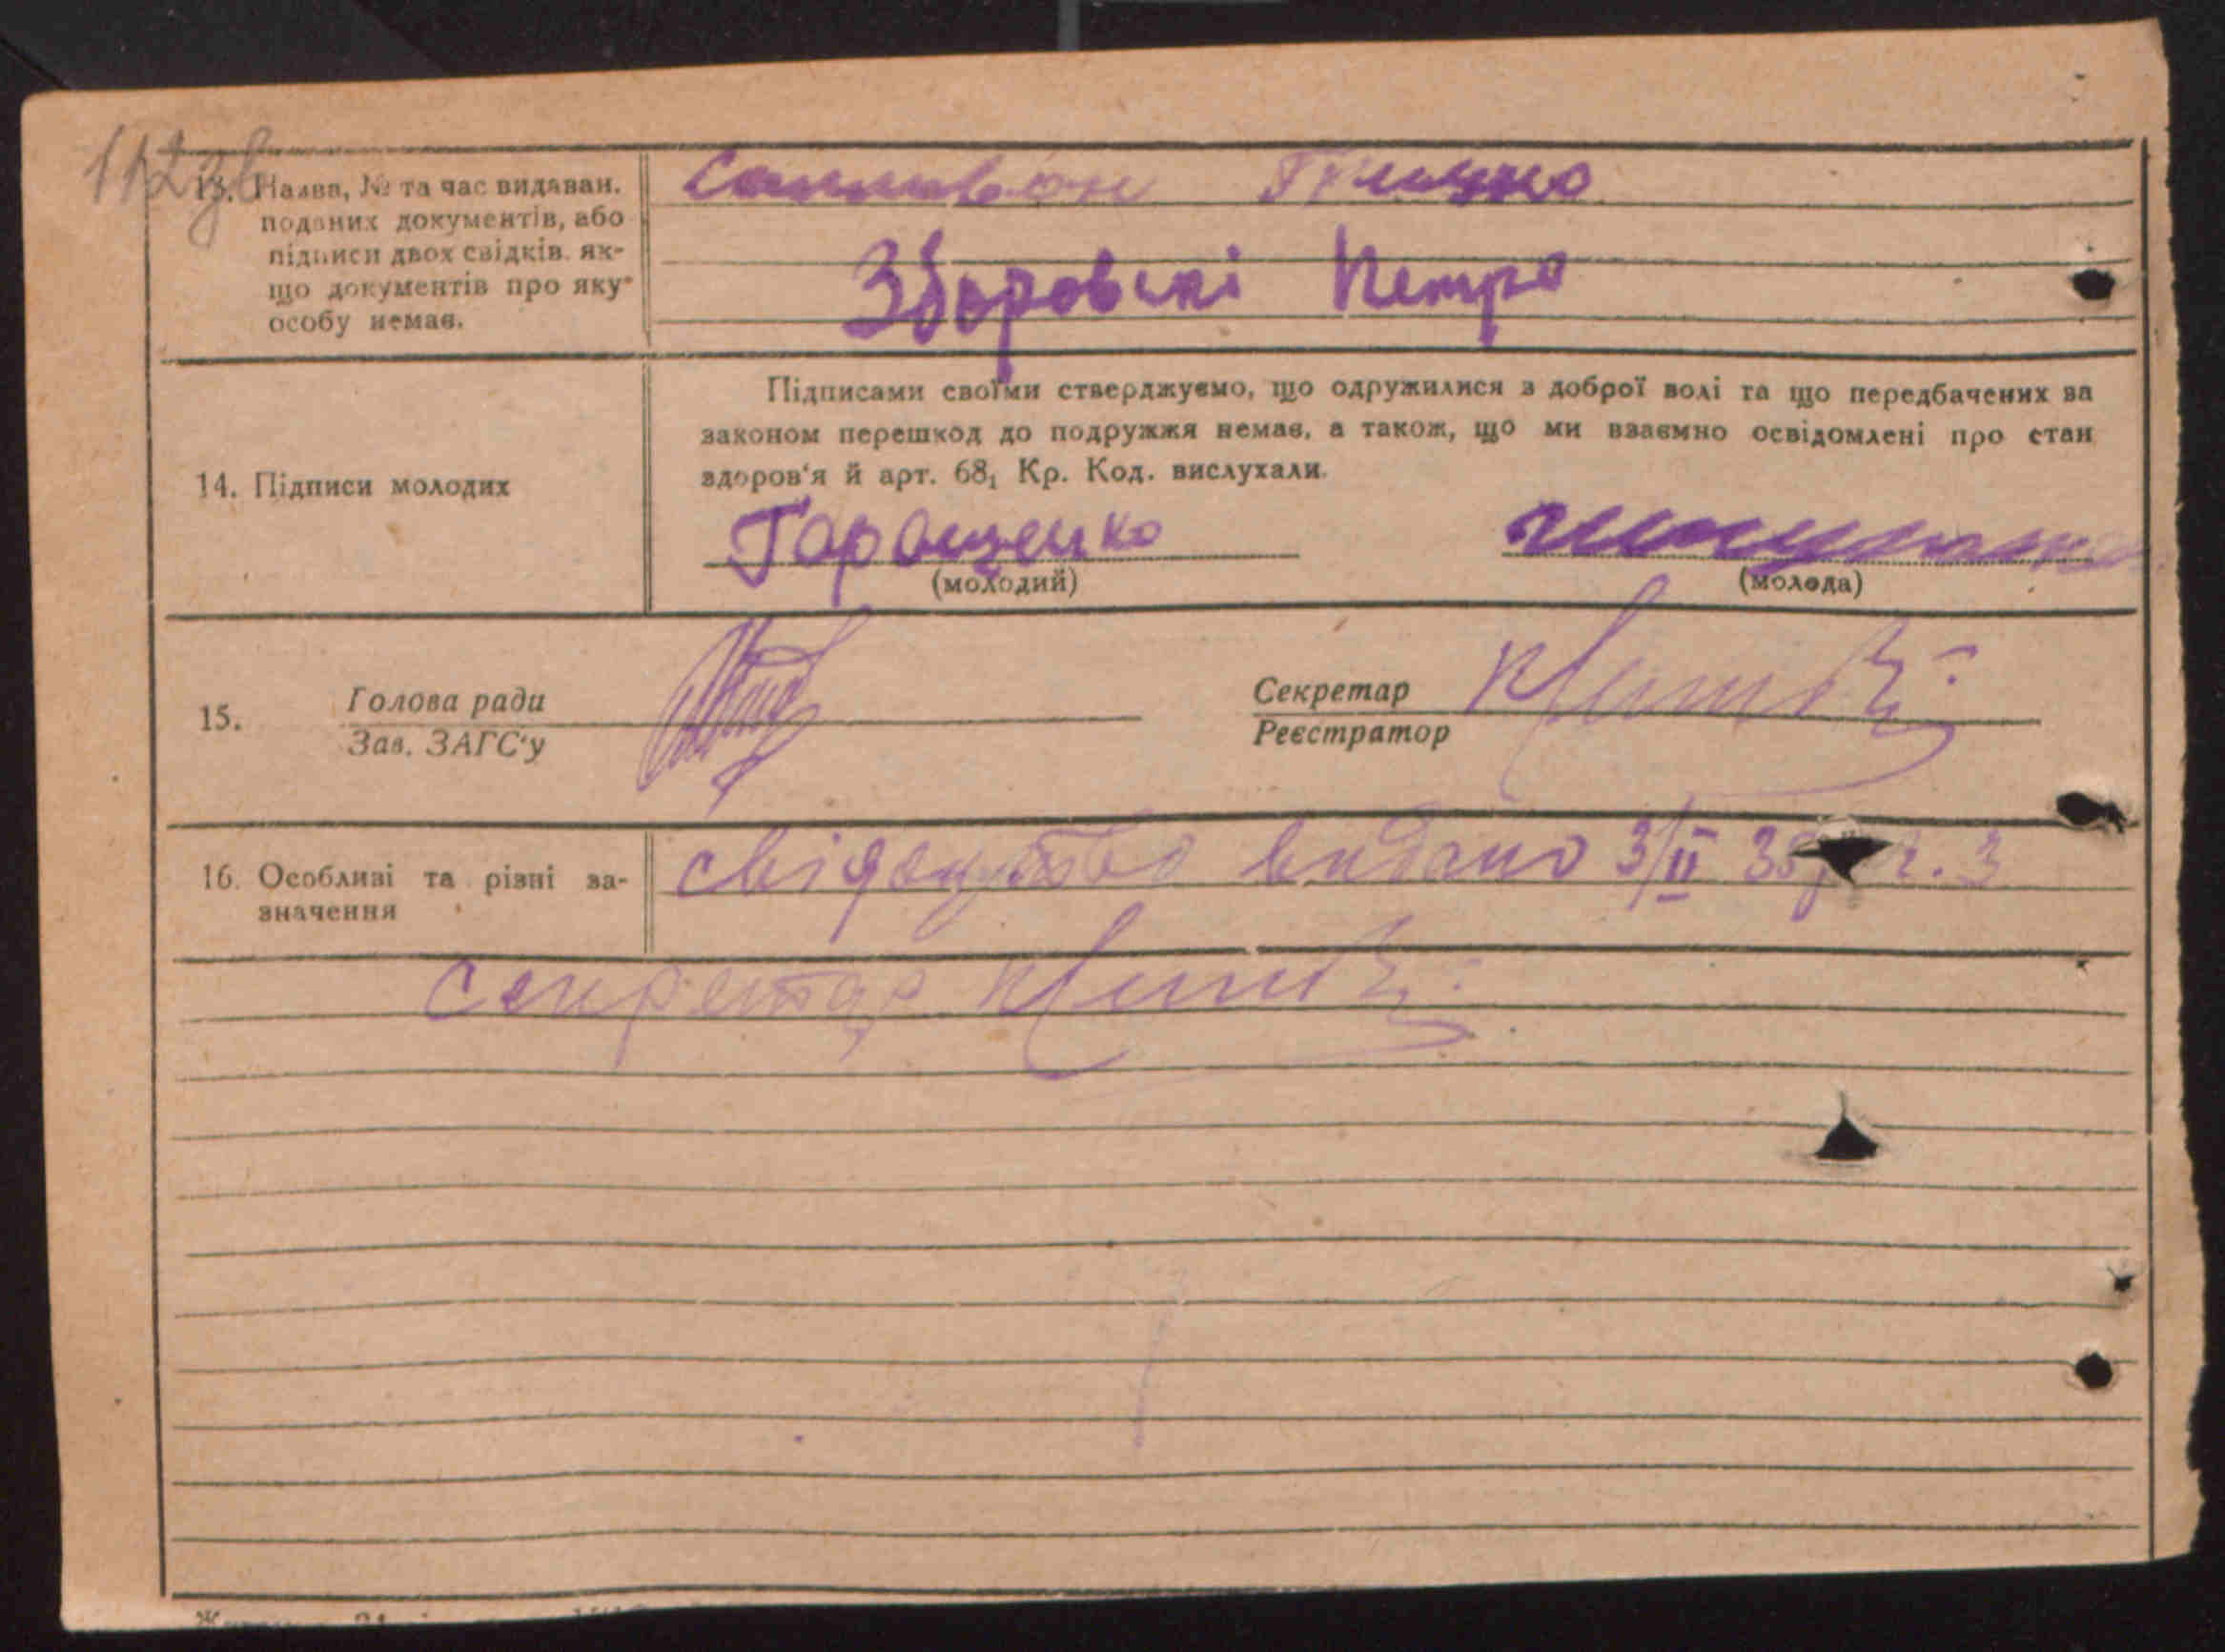 112зв
13. Назва, № та час видаван.
поданих документів, або
підписи двох свідків. як-
що документів про яку-
особу немає.
Зборовскі Петро
Підписами своїми стверджуємо, що одружилися з доброї волі та що передбачених за
законом перешкод до подружжя немає, а також, що ми взаємно освідомлені про стан
здоров'я й арт. 68₁ Кр. Код. вислухали.
14. Підписи молодих
Горощенко
(молодий)
(молода)
15.
Голова ради
Зав. ЗАГС'у
Секретар
Реєстратор
16. Особливі та різні за-
значення
свідоцтво видано 3/II
секретар